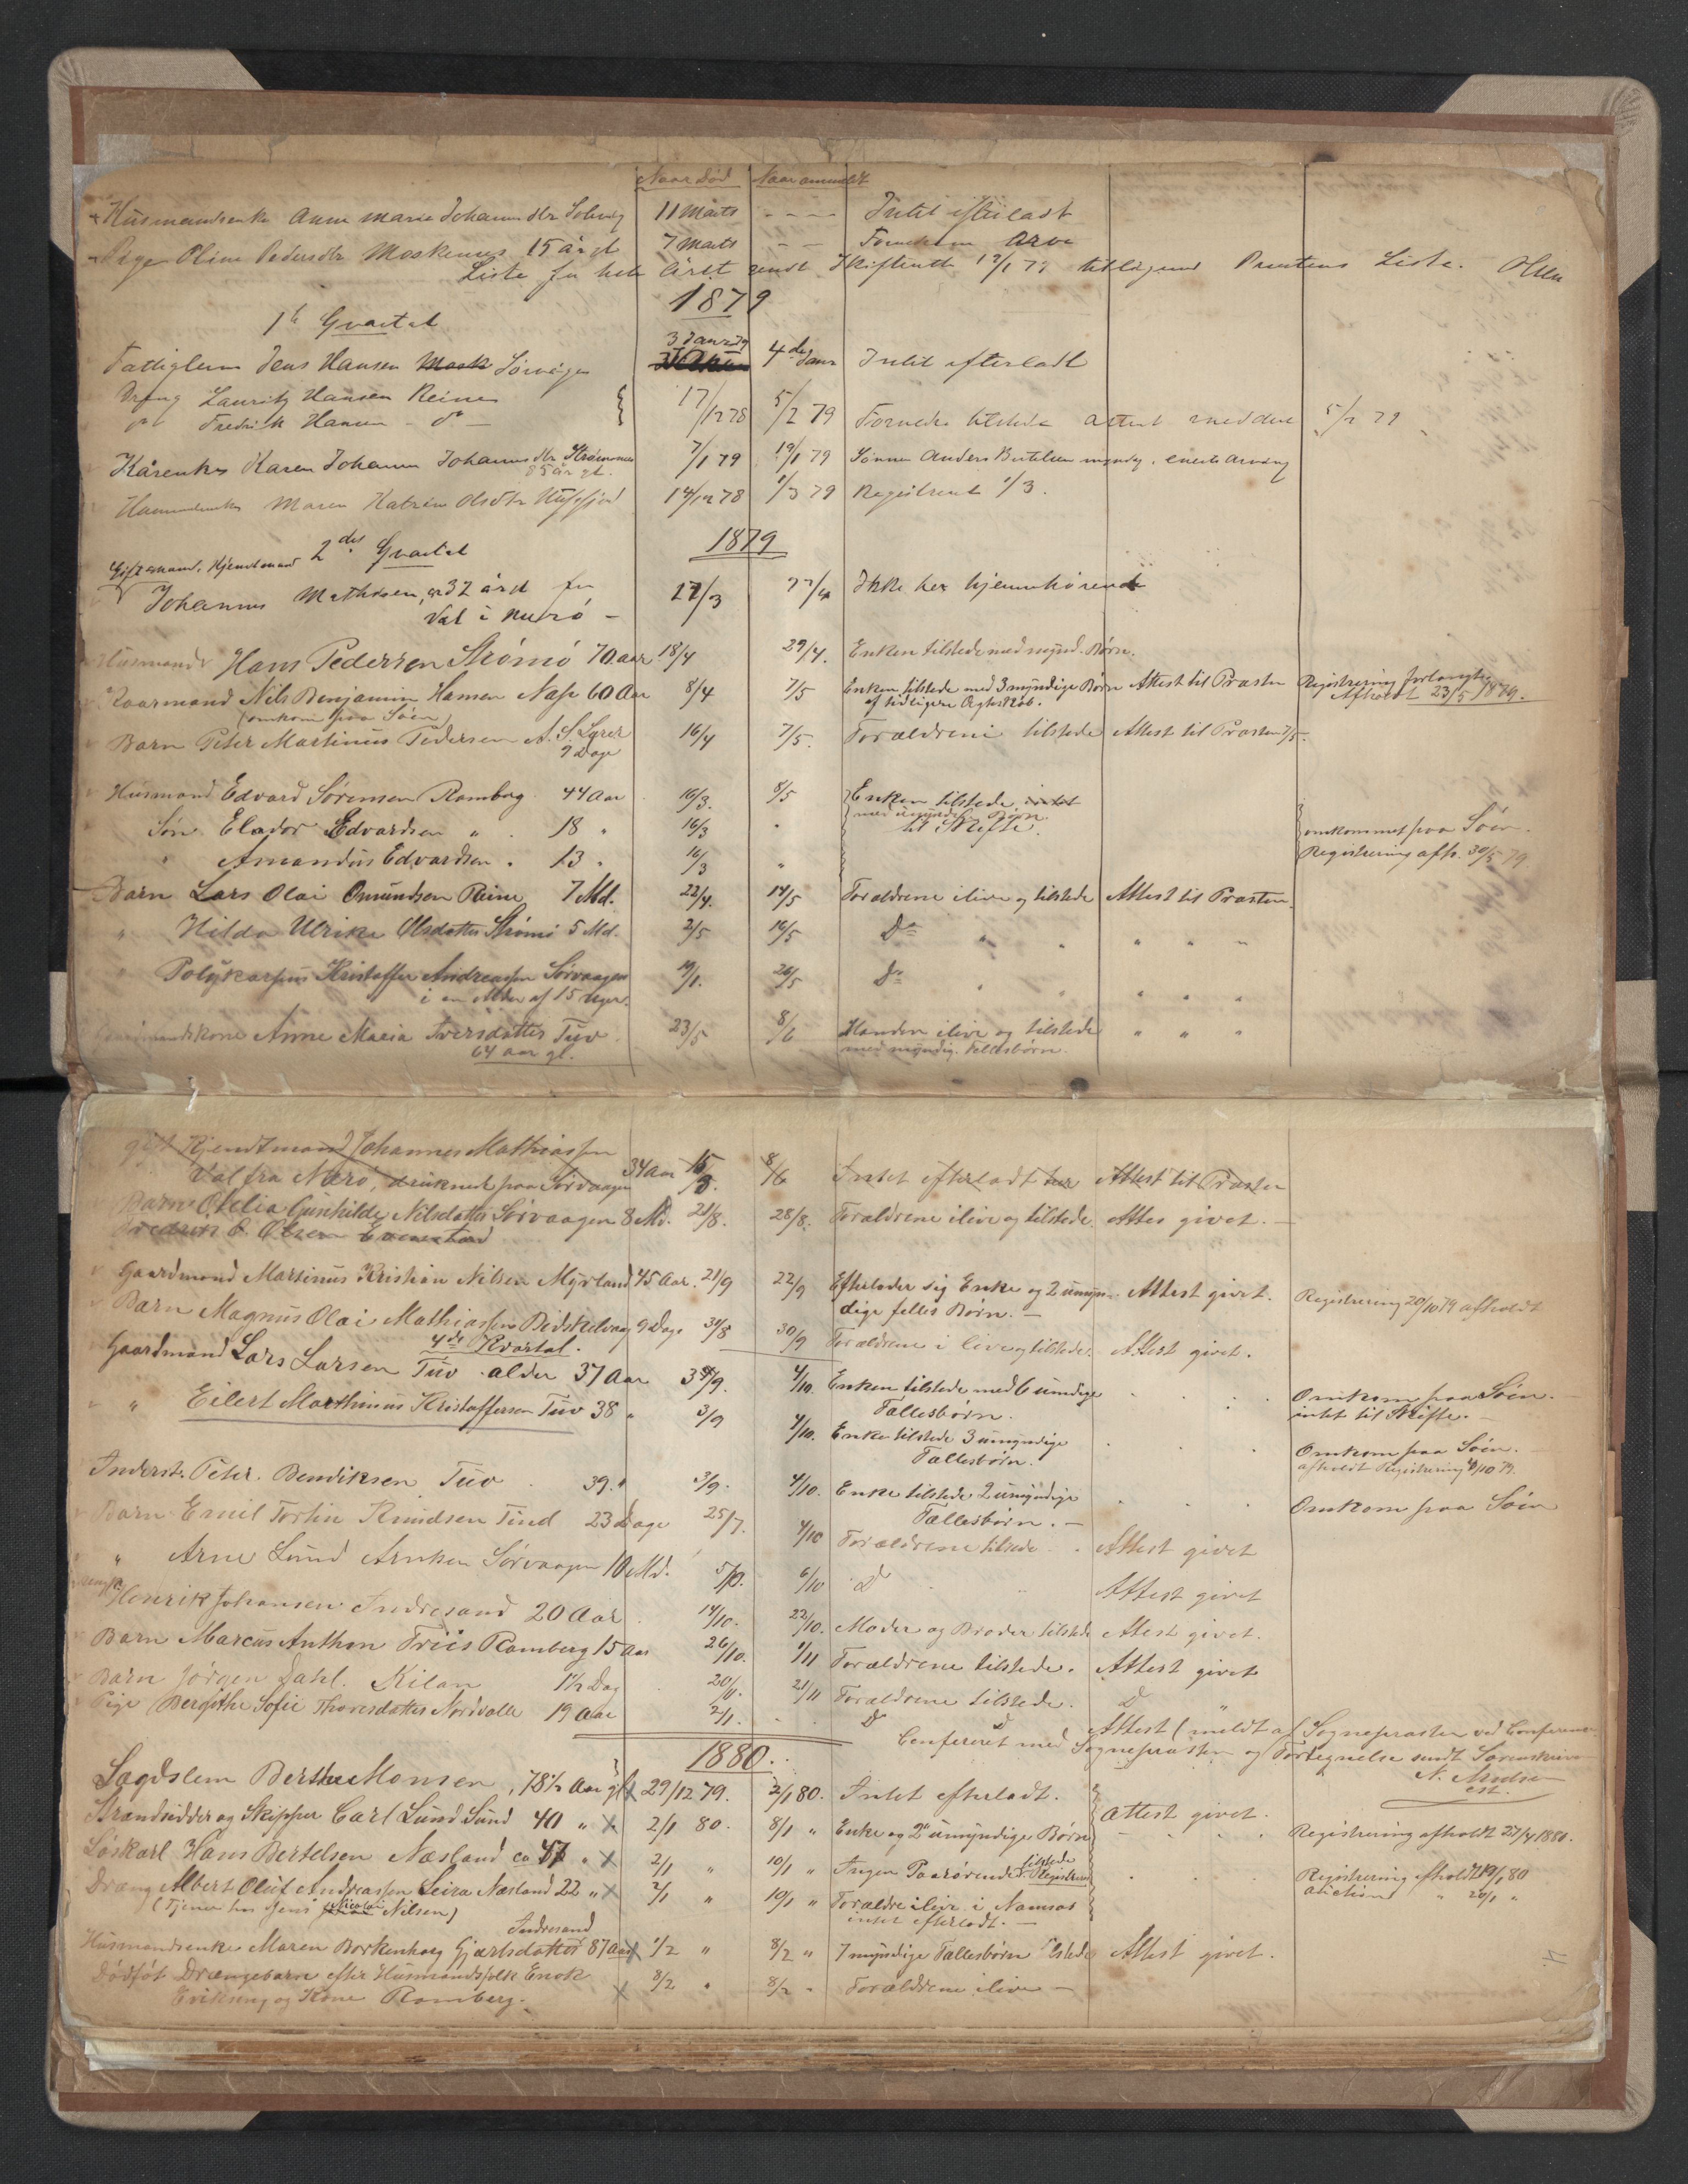 Naar død Naar anmeldt
Husmandsenke Anne Marie Johannsdtr Solvig 11 Marts - - - - Intet efterladt
Pige Oline Pedersdtr Moskenes 15 år gl 7 Marts - - Arve
Liste for hele Året sendt Skifteretten 12/1 79 Liste. Olsen
1879
1te Qvartal
Fattiglem Jens Hansen Sørvågen 3 Janr 79 4de Janr Intet efterladt
Dreng Lauritz Hansen Reine 17/12 78 5/2 79 tilstede attest meddelt 5/2 79
do Fredrik Hansen - do -
Kårenke Karen Johanna Johannsdtr Strømsnes 7/1 79 19/1 79 Sønnen Anders Bertelsen myndig, eneste Arving
85 år gl.
Maren Katrine Olsdtr 14/12 78 1/3 79 Registreret 1/3.
1879
2det Qvartal
Gift mand, Kjendtmand
Johannes Mathisen, ca 32 år fra 27/3 27/4 Ikke her hjemmehørende
Val i Nærö -
Husmand Hans Pedersen Strömö 70 aar 18/4 29/4. Enken tilstede med mynd. Børn.
Kaarmand Nils Benjamin Hansen Nap 60 Aar 8/4 7/5 Enken tilstede med 3 myndige Børn Attest til Præsten Registrering forlangtes
(omkom paa Söen) af tidligere Ægteskab. Afholdt 23/5 1879.
Barn Peter Martinus Pedersen A. S. 16/4 7/5. Forældrene tilstede Attest til Præsten 7/5.
9 Dage
Husmand Edvard Sörensen Ramberg. 44 Aar 16/3. 8/5 Enken tilstede, intet
med umyndige Børn.
Søn Elador Edvardsen " . 18 " 16/3 " til Skifte. omkommet paa Söen.
" Amandus Edvardsen . 13 " 16/3 " Registrering afh. 30/5 79
Barn Lars Olai Omundsen Reine 7 Md. 22/4. 14/5 Forældrene ilive og tilstede Attest til Præsten.
" Hilda Ulrike Olsdatter Strömö 5 Md. 2/5 16/5 Do " " " " "
" Polykarpus Kristoffer Andreassen Sörvaagen 19/1. 26/5 Do " " " " "
i en Alder af 15 Uger.
Gaardmandskone Anne Maria Iversdatter Tuv 23/5 8/6 Manden ilive og tilstede " " "
64 aar gl. med myndig. Fellesbörn.
gift Kjendtmand Johannes Mathiassen
Val fra Nærö, druknet paa Sörvaagen 34 Aar 15/3. 8/6 Intet efterladt her Attest til Præsten
Barn Otelia Gunhilde Nilsdatter Sörvaagen 8 Md. 21/8. 28/8. Forældrene ilive og tilstede. Attes givet.
Fredrik O. Olsen
Gaardmand Martinus Kristian Nilsen Myrland 45 Aar. 21/9 22/9 Efterlader sig Enke og 2 umyn- Attest givet. Registrering 20/10 79 afholdt
dige felles Børn. -
Barn Magnus Olai Mathiassen 9 Dage 30/8 30/9 Forældrene i live og tilstede. Attest givet.
4de Kvartal.
Gaardmand Lars Larsen Tuv . alder 37 Aar 3/9. 4/10. Enken tilstede med 6 umdige . . . Omkom paa Söen.
Fallesbörn. intet til Skifte. -
" Eilert Marthinus Kristoffersen Tuv 38 " 3/9 4/10. Enke tilstede 3 umyndige . . . Omkom paa Söen.
Fallesbörn. afholdt Registrering /10 79.
Inderst. Peter. Bendiksen Tuv . 39. " 3/9. 4/10. Enke tilstede 2 umyndige . . . Omkom paa Söen
Fællesbörn. -
Barn Emil Torlin Knudsen Tind 23 Dage 25/7. 4/10 Forældrene tilstede . Attest givet
" Arne Lund Arntzen Sörvaagen 10 Md. 5/9. 6/10 Do Attest givet
Henrik Johansen Indresand 20 Aar 14/10. 22/10. Moder og Broder tilstede Attest givet.
Barn Marcus Anthon Friis Ramberg 15 Aar 26/10. 1/11 Forældrene tilstede. Attest givet
Barn Jörgen Dahl. Kilan 1½ Dag 20/11. 21/11 Forældrene tilstede. Do "
Pige Bergithe Sofie Thoresdatter Nordvalle 19 Aar 2/11. . . Do Do Attest (meldt af Sognepræsten ved Conference
Confereret med Sognepræsten og Fortegnelse sendt Sorenskriver
1880. N.
Lægdslem Berthe Monsen, 78½ Aar gl X 29/12 79. 2/1 80. Intet efterladt.
Strandsidder og Skipper Carl Lund Sund 40 " X 2/1 80. 8/1 " Enke og 2 umyndige Børn Attest givet. Registrering afholdt 27/4 1880.
Löskarl Hans Bertelsen Næsland ca 47 " X 2/1 " 10/1 " Ingen Paarørende tilstede Registreret . . Registrering Afholdt 19/1 80
Dræng Albert Oluf Andreassen Leira Næsland 22 " X 2/1 " 10/1 " Forældre ilive i Namsos auction " 20/1 "
(Tjener hos Jens Nicolai Nilsen) intet efterladt. -
Indresand
Husmandsenke Maren Borkenhag Gjærtsdatter 87 Aar X 1/2 " 8/2 " 7 myndige Fallesbörn tilstede Attest givet.
Dødföt Drængebarn efter Husmandsfolk Enok X 8/2 " 8/2 - Forældrene ilive -
Eriksen og Kone Ramberg.